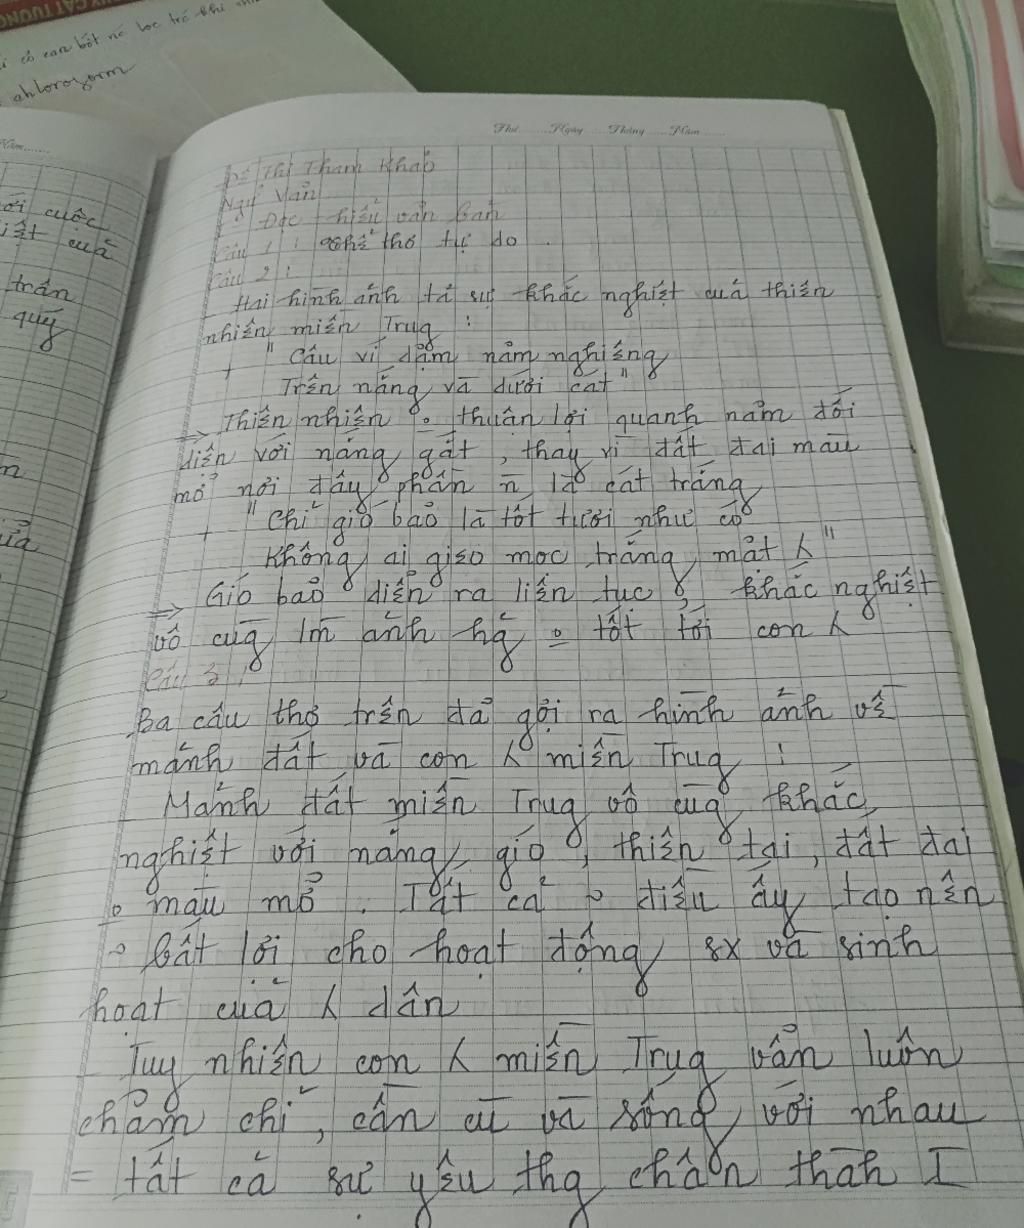 chloroform
Thứ Ngày Tháng Năm
Đề Thi Tham Khảo
Ngữ Văn
Đọc hiểu văn bản
Câu 1 : thể thơ tự do
Câu 2 :
Hai hình ảnh tả sự khắc nghiệt của thiên
nhiên miền Trug :
+ " Câu ví dặm nằm nghiêng
Trên nắng và dưới cát"
=> Thiên nhiên o thuận lợi quanh năm đối
diện với nắng gắt, thay vì đất đai màu
mỡ nơi đây phần n là cát trắng
+ "Chỉ gió bão là tốt tươi như cỏ
Không ai gieo mọc trắng mặt λ"
=> Gió bão diễn ra liên tục, khắc nghiệt
vô cùg làm ảnh hg o tốt tới con λ
Câu 3 :
Ba câu thơ trên đã gợi ra hình ảnh về
mảnh đất và con λ miền Trug :
Mảnh đất miền Trug vô cùg khắc
nghiệt với nắng gió, thiên tai, đất đai
o màu mỡ. Tất cả điều ấy tạo nên
bất lợi cho hoạt động sx và sinh
hoạt của λ dân
Tuy nhiên con λ miền Trug vẫn luôn
chăm chỉ, cần cù và sống với nhau
= tất cả sự yêu thg chân thành I
ới cuộc
trân
quý